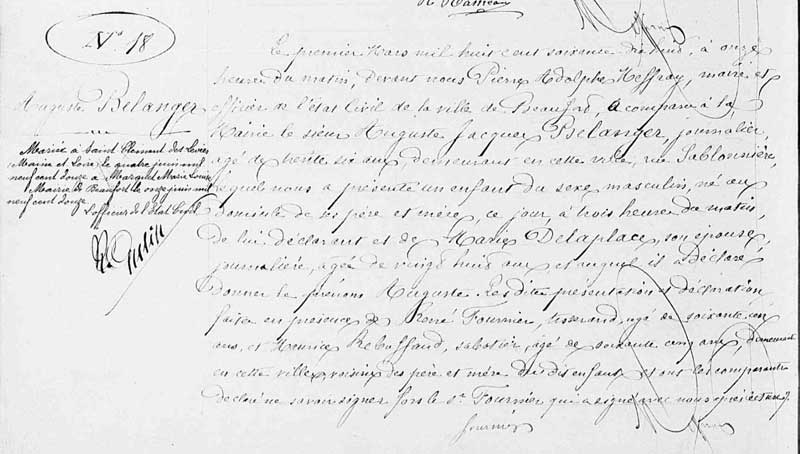 N° 18
Auguste Belanger
Marié à Saint Clement des Levées
Maine et Loire le quatre juin mil
neuf cent douze à Marquet Marie Louise
Mairie de Beaufort le onze juin mil
neuf cent douze
L'officier de l'Etat Civil
Le premier Mars mil huit cent soixante dix huit, à onze
heures du matin, devant nous Pierre Adolphe Meffray, maire et
officier de l'état Civil de la ville de Beaufort, a comparu à la
Mairie le sieur Auguste Jacques Belanger, journalier,
agé de trente six ans, demeurant en cette ville, rue Sablonnière,
lequel nous a présenté un enfant du sexe masculin, né au
domicile de ses père et mère, ce jour, à trois heures du matin,
de lui déclarant et de Marie Delaplace, son épouse,
journalière, agée de vingt huit ans et auquel il a déclaré
donner le prénom Auguste. Les dites présentation et déclaration
faites en présence de René Fournier, tisserand, agé de soixante un
ans, et Maurice Rebuffaud, sabotier, agé de soixante cinq ans, demeurant
en cette ville, voisins des père et mère du dit enfant et ont les comparants
déclaré ne savoir signer fors le sr Fournier qui a signé avec nous après lecture.
Fournier